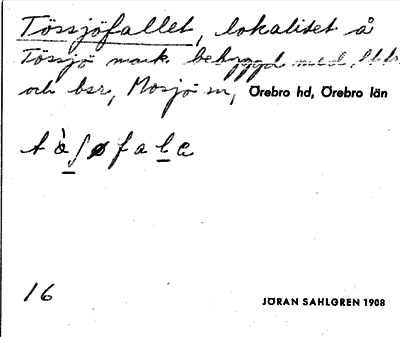 Tössjöfallet, lokalitet å
Tössjö mark bebyggd med
och bsr, Mosjö sn, Örebro hd, Örebro län
tὰʃøfalɛ
16
JÖRAN SAHLGREN 1908